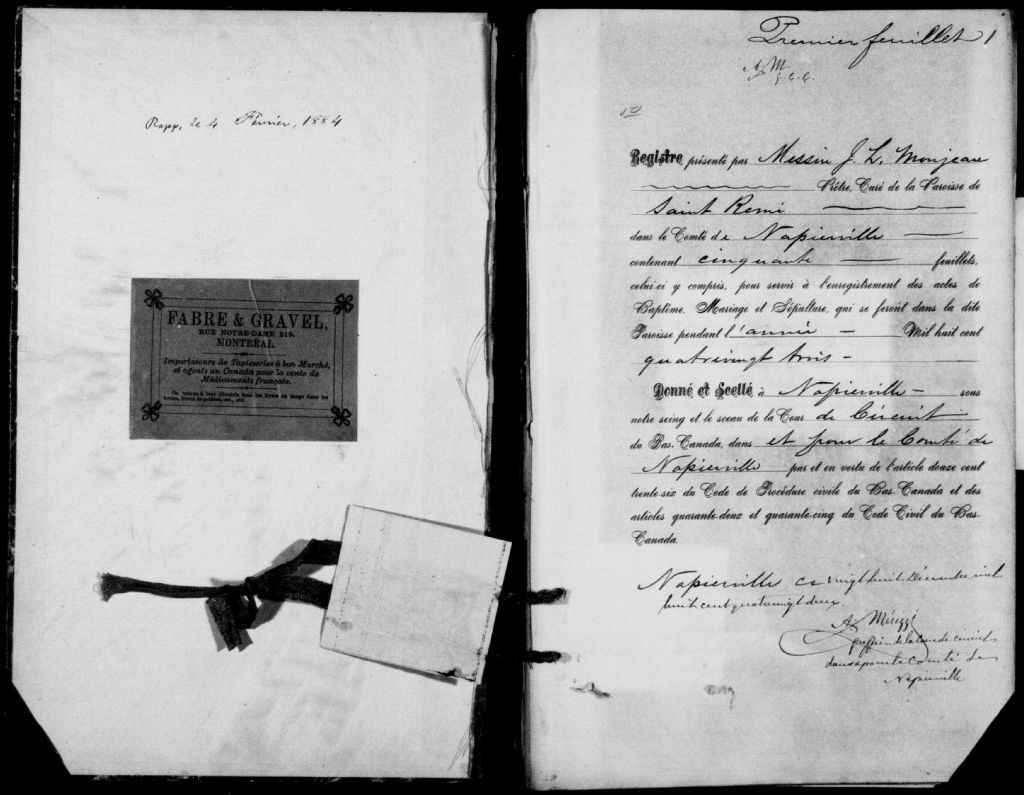 Rapp. le 4 Février, 1884
FABRE & GRAVEL,
RUE NOTRE-DAME 219,
MONTRÉAL.
Importateurs de Tapisseries à bon Marché,
et agents au Canada pour la vente de
Médicaments français.
On trouve à leur librairie tous les livres en usage dans les
écoles, livres de prières, etc., etc.
Premier feuillet 1
A M
G. C. C.
Registre présenté par Messire J. L. Monjeau
Prêtre, Curé de la Paroisse de
Saint Remi
dans le Comté de Napierville
contenant cinquante feuillets,
celui-ci y compris, pour servir à l'enregistrement des actes de
Baptême, Mariage et Sépulture, qui se feront dans la dite
Paroisse pendant l'année Mil huit cent
quatrevingt trois -
Donné et Scellé à Napierville - sous
notre seing et le sceau de la Cour de Circuit
du Bas-Canada, dans et pour le Comté de
Napierville par et en vertu de l'article douze cent
trente-six du Code de Procédure civile du Bas-Canada et des
articles quarante-deux et quarante-cinq du Code Civil du Bas-
Canada.
Napierville ce vingt huit Décembre mil
huit cent quatrevingt deux.
A. Mérizzi
greffier de la Cour de circuit
dans & pour le Comté de
Napierville